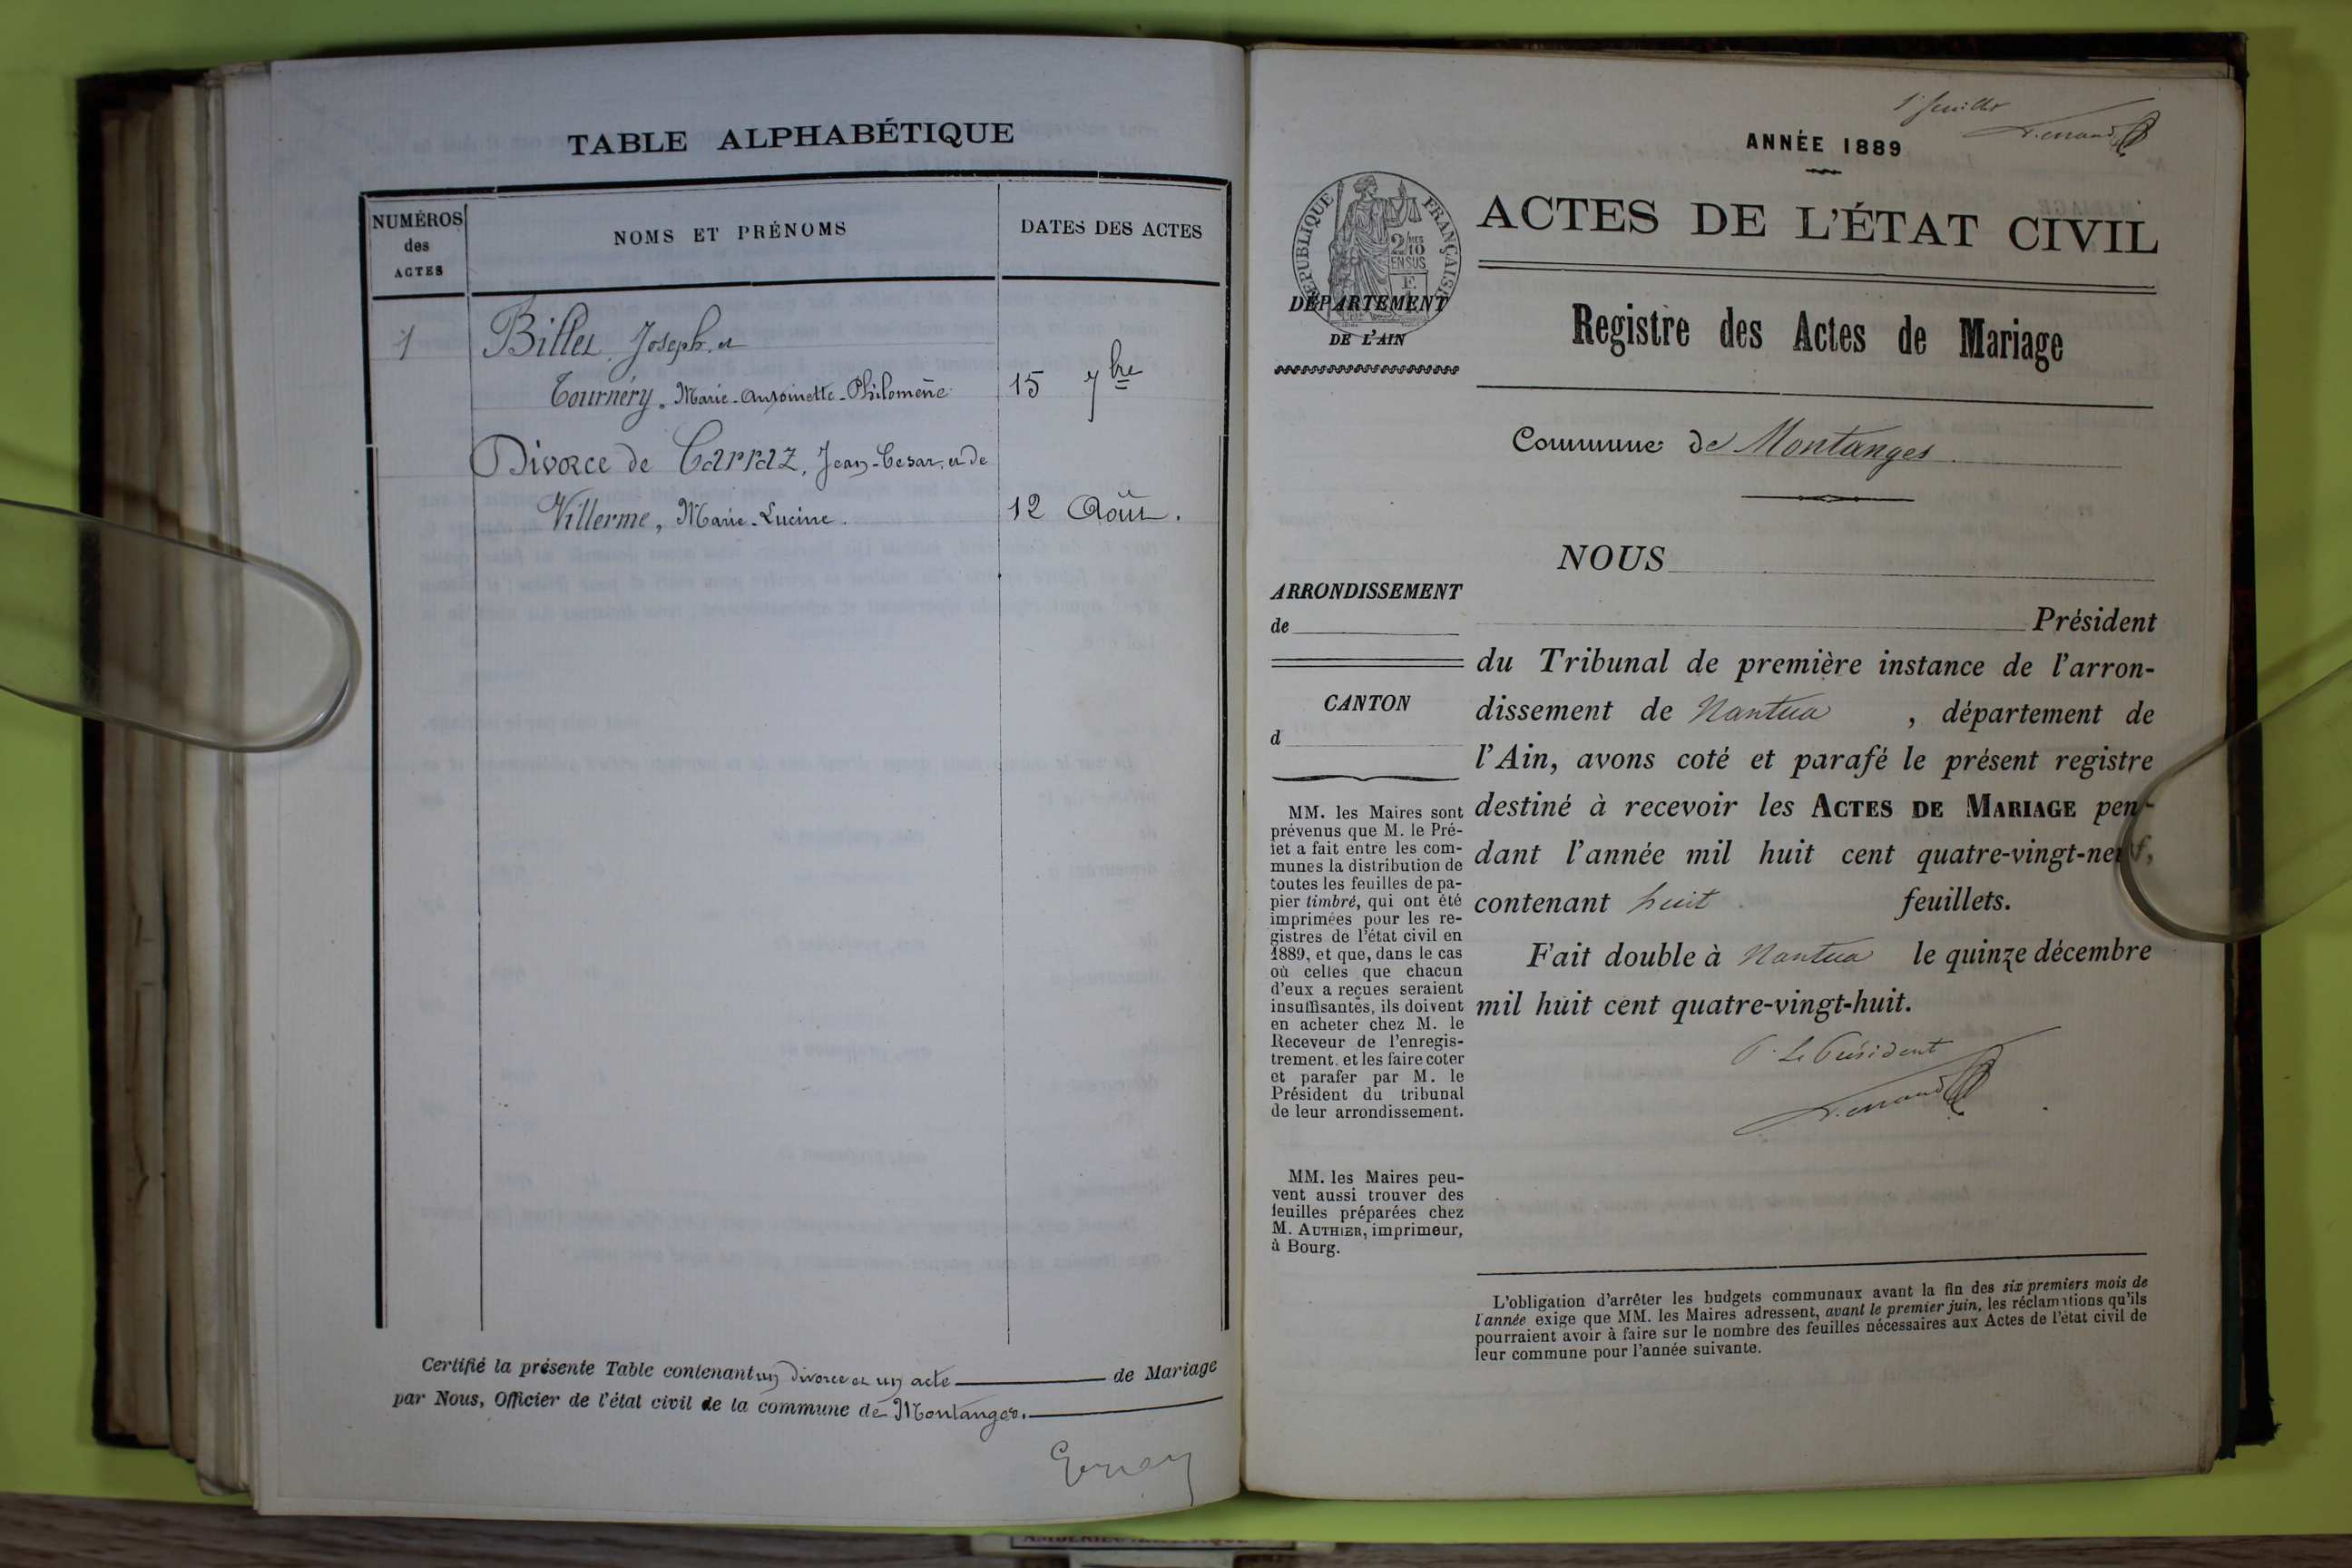 TABLE ALPHABÉTIQUE
NUMÉROS
des
ACTES
NOMS ET PRÉNOMS
DATES DES ACTES
1
Billet, Joseph, et
Tournéry, Marie-Antoinette-Philomène
15 7bre
Divorce de Carraz, Jean-Cesar, et de
Villerme, Marie-Lucine.
12 Août.
Certifié la présente Table contenant un divorce et un acte de Mariage
par Nous, Officier de l'état civil de la commune de Montanges.
1er feuillet
ANNÉE 1889
RÉPUBLIQUE FRANÇAISE
2/10
EN SUS
DÉPARTEMENT
DE L'AIN
ACTES DE L'ÉTAT CIVIL
Registre des Actes de Mariage
Commune de Montanges
ARRONDISSEMENT
de
CANTON
d
MM. les Maires sont
prévenus que M. le Pré-
fet a fait entre les com-
munes la distribution de
toutes les feuilles de pa-
pier timbré, qui ont été
imprimées pour les re-
gistres de l'état civil en
1889, et que, dans le cas
où celles que chacun
d'eux a reçues seraient
insuffisantes, ils doivent
en acheter chez M. le
Receveur de l'enregis-
trement. et les faire coter
et parafer par M. le
Président du tribunal
de leur arrondissement.
MM. les Maires peu-
vent aussi trouver des
feuilles préparées chez
M. AUTHIER, imprimeur,
à Bourg.
NOUS
Président
du Tribunal de première instance de l'arron-
dissement de Nantua , département de
l'Ain, avons coté et parafé le présent registre
destiné à recevoir les ACTES DE MARIAGE pen-
dant l'année mil huit cent quatre-vingt-neuf,
contenant huit feuillets.
Fait double à Nantua le quinze décembre
mil huit cent quatre-vingt-huit.
P. Le Président
L'obligation d'arrêter les budgets communaux avant la fin des six premiers mois de
l'année exige que MM. les Maires adressent, avant le premier juin, les réclamations qu'ils
pourraient avoir à faire sur le nombre des feuilles nécessaires aux Actes de l'état civil de
leur commune pour l'année suivante.